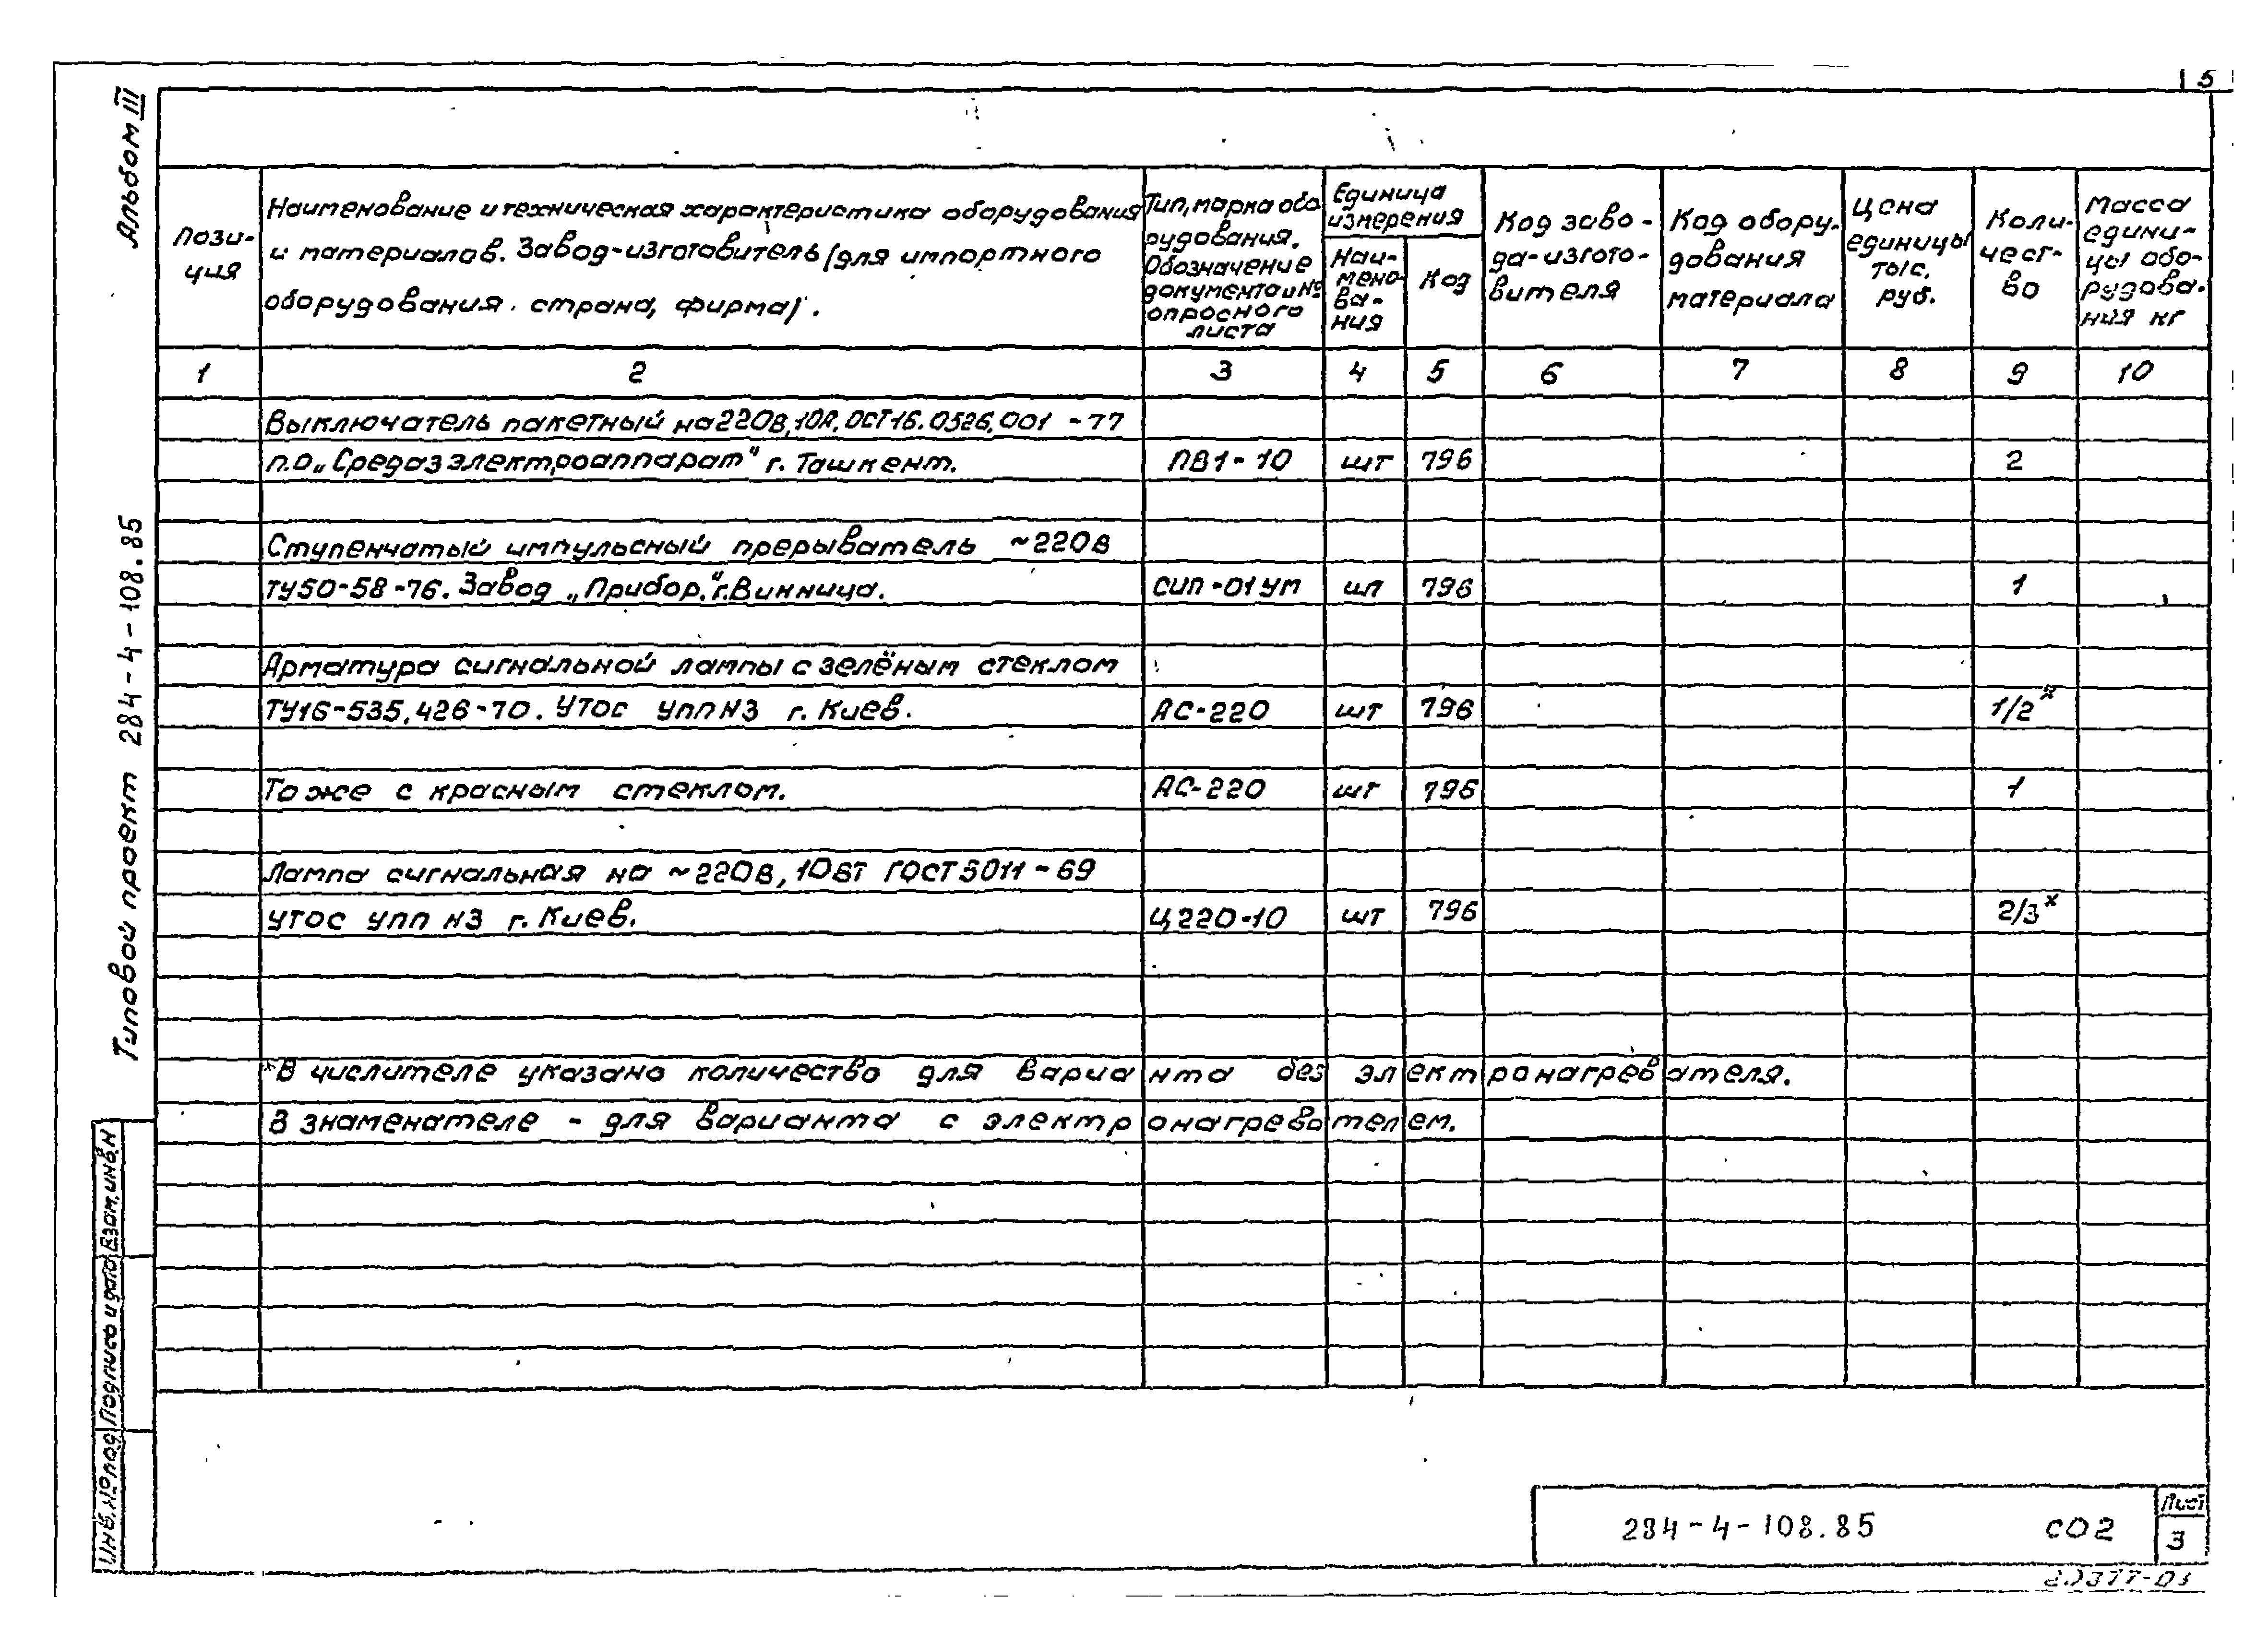 5
Альбом III
Типовой проект 284-4-108.85
Пози-
ция
Наименование и техническая характеристика оборудования
и материалов. Завод-изготовитель (для импортного
оборудования. страна, фирма).
Тип, марка обо
рудования.
Обозначение
документа и №
опросного
листа
Единица
измерения
Наи-
мено-
ва-
ния
Код
Код заво-
да-изгото-
вителя
Код обору-
дования
материала
Цена
единицы
тыс.
руб.
Коли-
чест-
во
Масса
едини-
цы обо-
рудова-
ния кг
1 2 3 4 5 6 7 8 9 10
Выключатель пакетный на 220в, 10А, ОСТ16.0526.001 -77
п.о „Средазэлектроаппарат" г. Ташкент. ПВ1-10 шт 796 2
Ступенчатый импульсный прерыватель ~220в
ТУ50-58-76. Завод „Прибор." г. Винница. СИП-01УМ шт 796 1
Арматура сигнальной лампы с зелёным стеклом
ТУ16-535.426-70. УТОС УПП N3 г. Киев. АС-220 шт 796 1/2*
То же с красным стеклом. АС-220 шт 796 1
Лампа сигнальная на ~220в, 10вт ГОСТ5011-69
УТОС УПП N3 г. Киев. Ц220-10 шт 796 2/3*
*В числителе указано количество для варианта без электронагревателя.
В знаменателе - для варианта с электронагревателем.
Взам. инв. N
Подпись и дата
Инв. № подл
284-4-108.85 СО2
Лист
3
20377-03